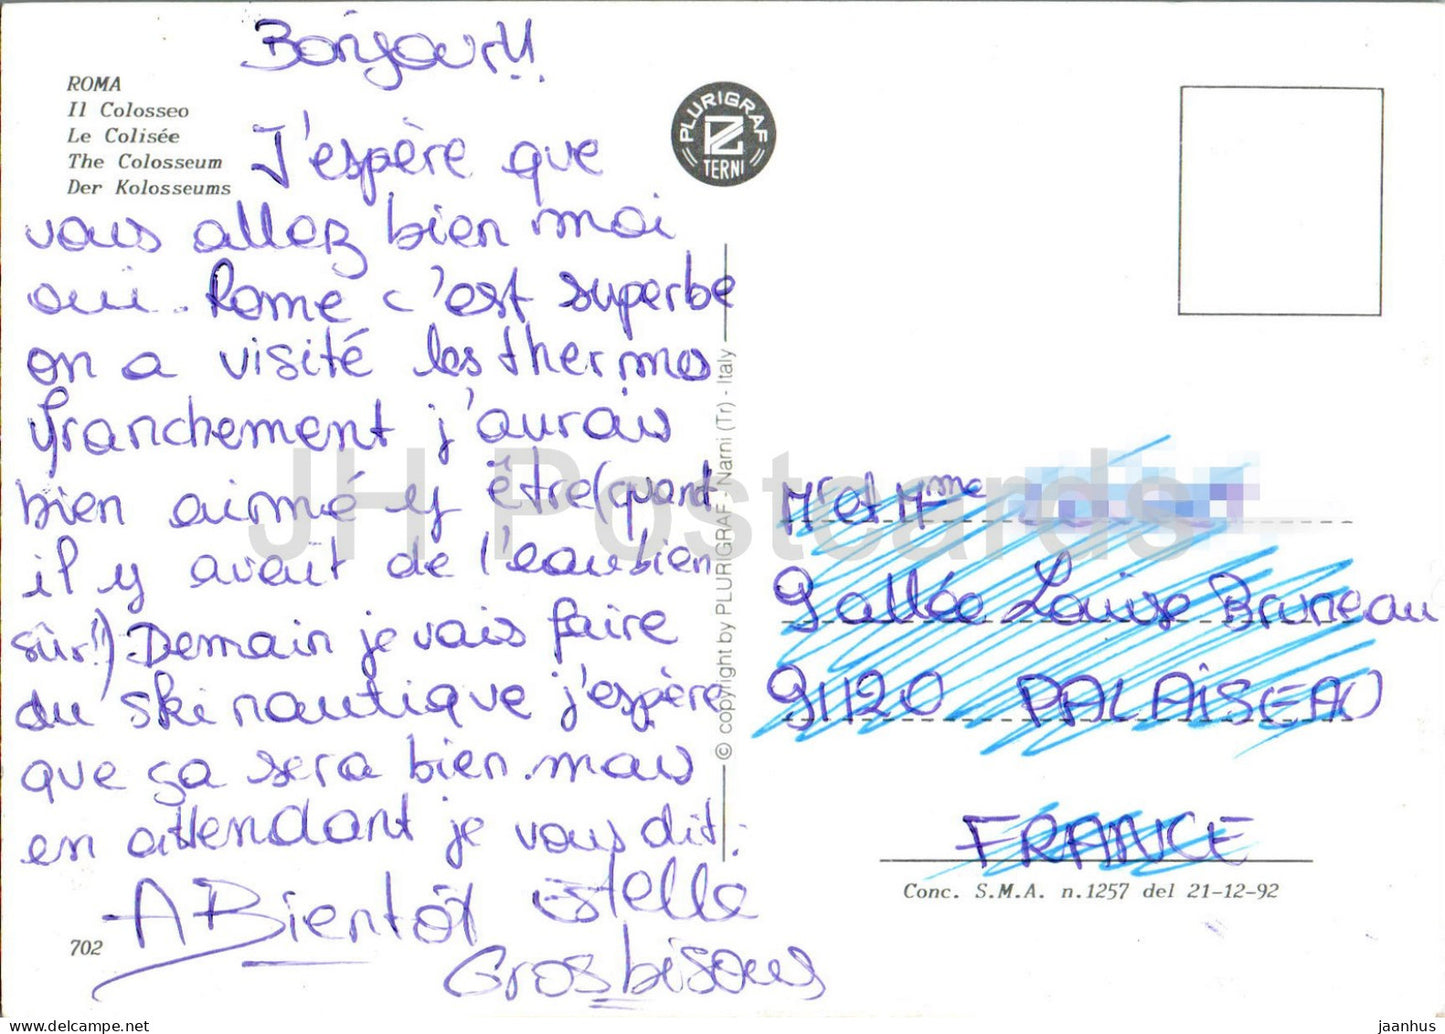 Bonjour!!
ROMA
Il Colosseo
Le Colisée
The Colosseum
Der Kolosseums
J'espère que
vous allez bien moi
oui. Rome c'est superbe
on a visité les thermes
franchement j'aurais
bien aimé y être (quant
il y avait de l'eau bien
sûr!!) Demain je vais faire
du ski nautique j'espère
que ça sera bien. mais
en attendant je vous dit:
A Bientôt Estelle
Gros bisous
702
PLURIGRAF
TERNI
© copyright by PLURIGRAF - Narni (Tr) - Italy
Mr et Mme
9 allée Louise Bruneau
91120 PALAISEAU
FRANCE
Conc. S.M.A. n.1257 del 21-12-92
JH Postcards
jaanhus
www.delcampe.net